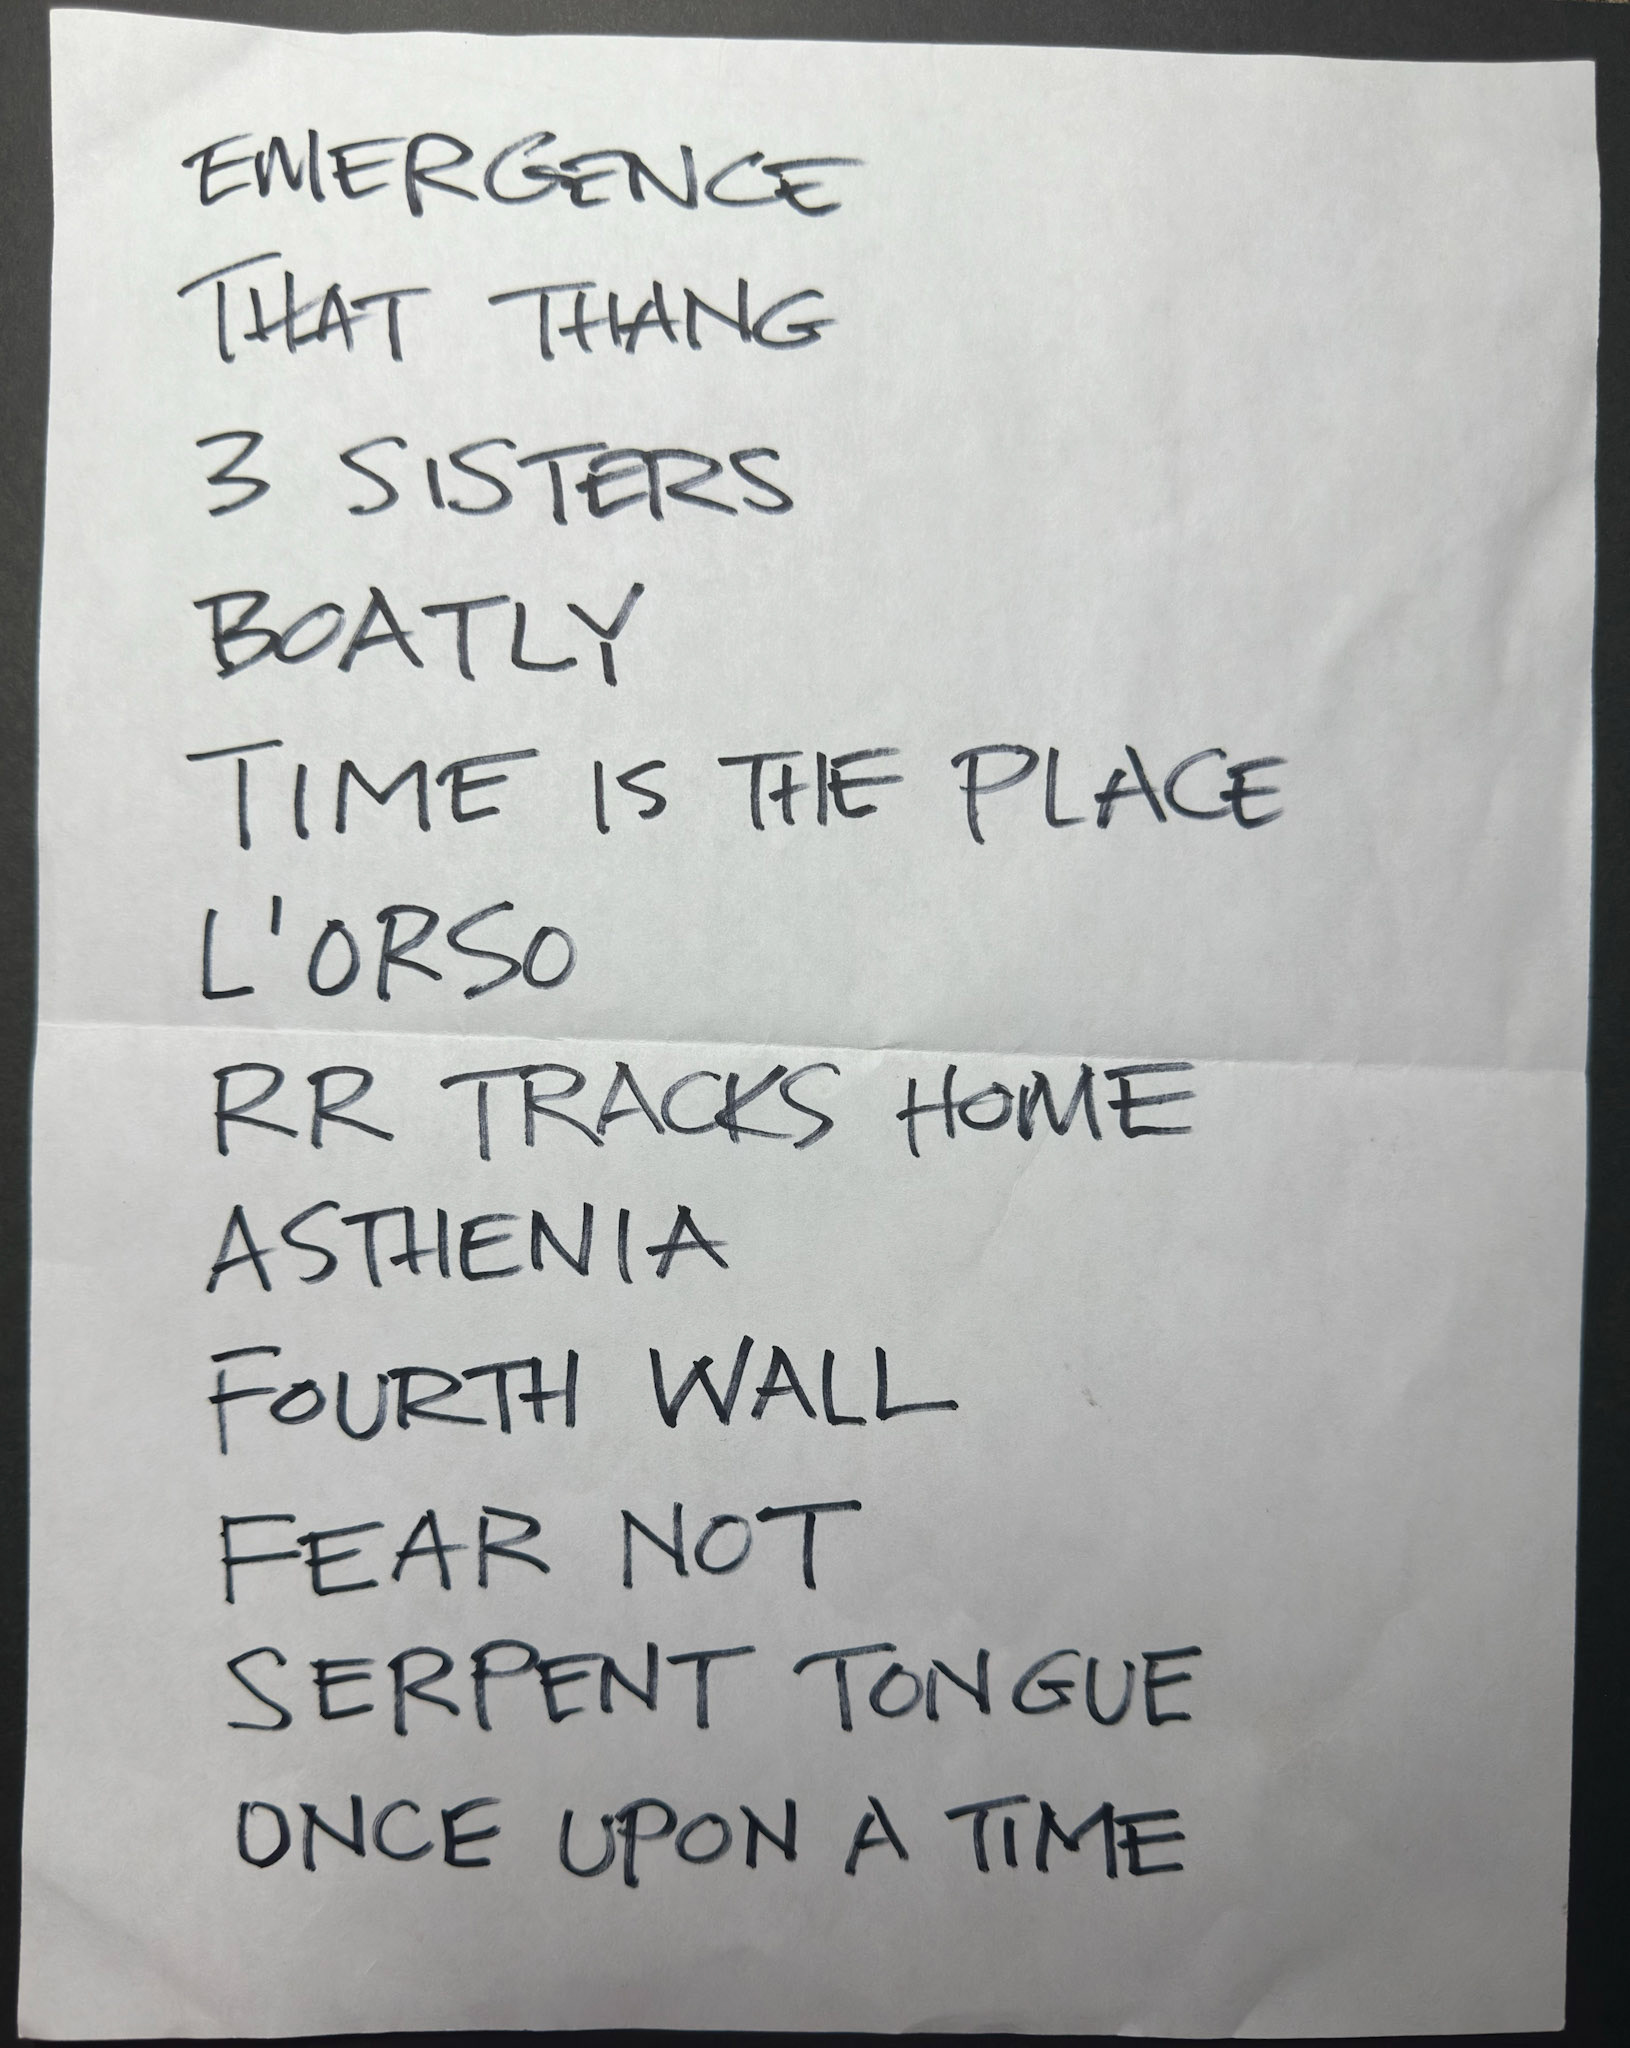 EMERGENCE
THAT THANG
3 SISTERS
BOATLY
TIME IS THE PLACE
L'ORSO
RR TRACKS HOME
ASTHENIA
FOURTH WALL
FEAR NOT
SERPENT TONGUE
ONCE UPON A TIME